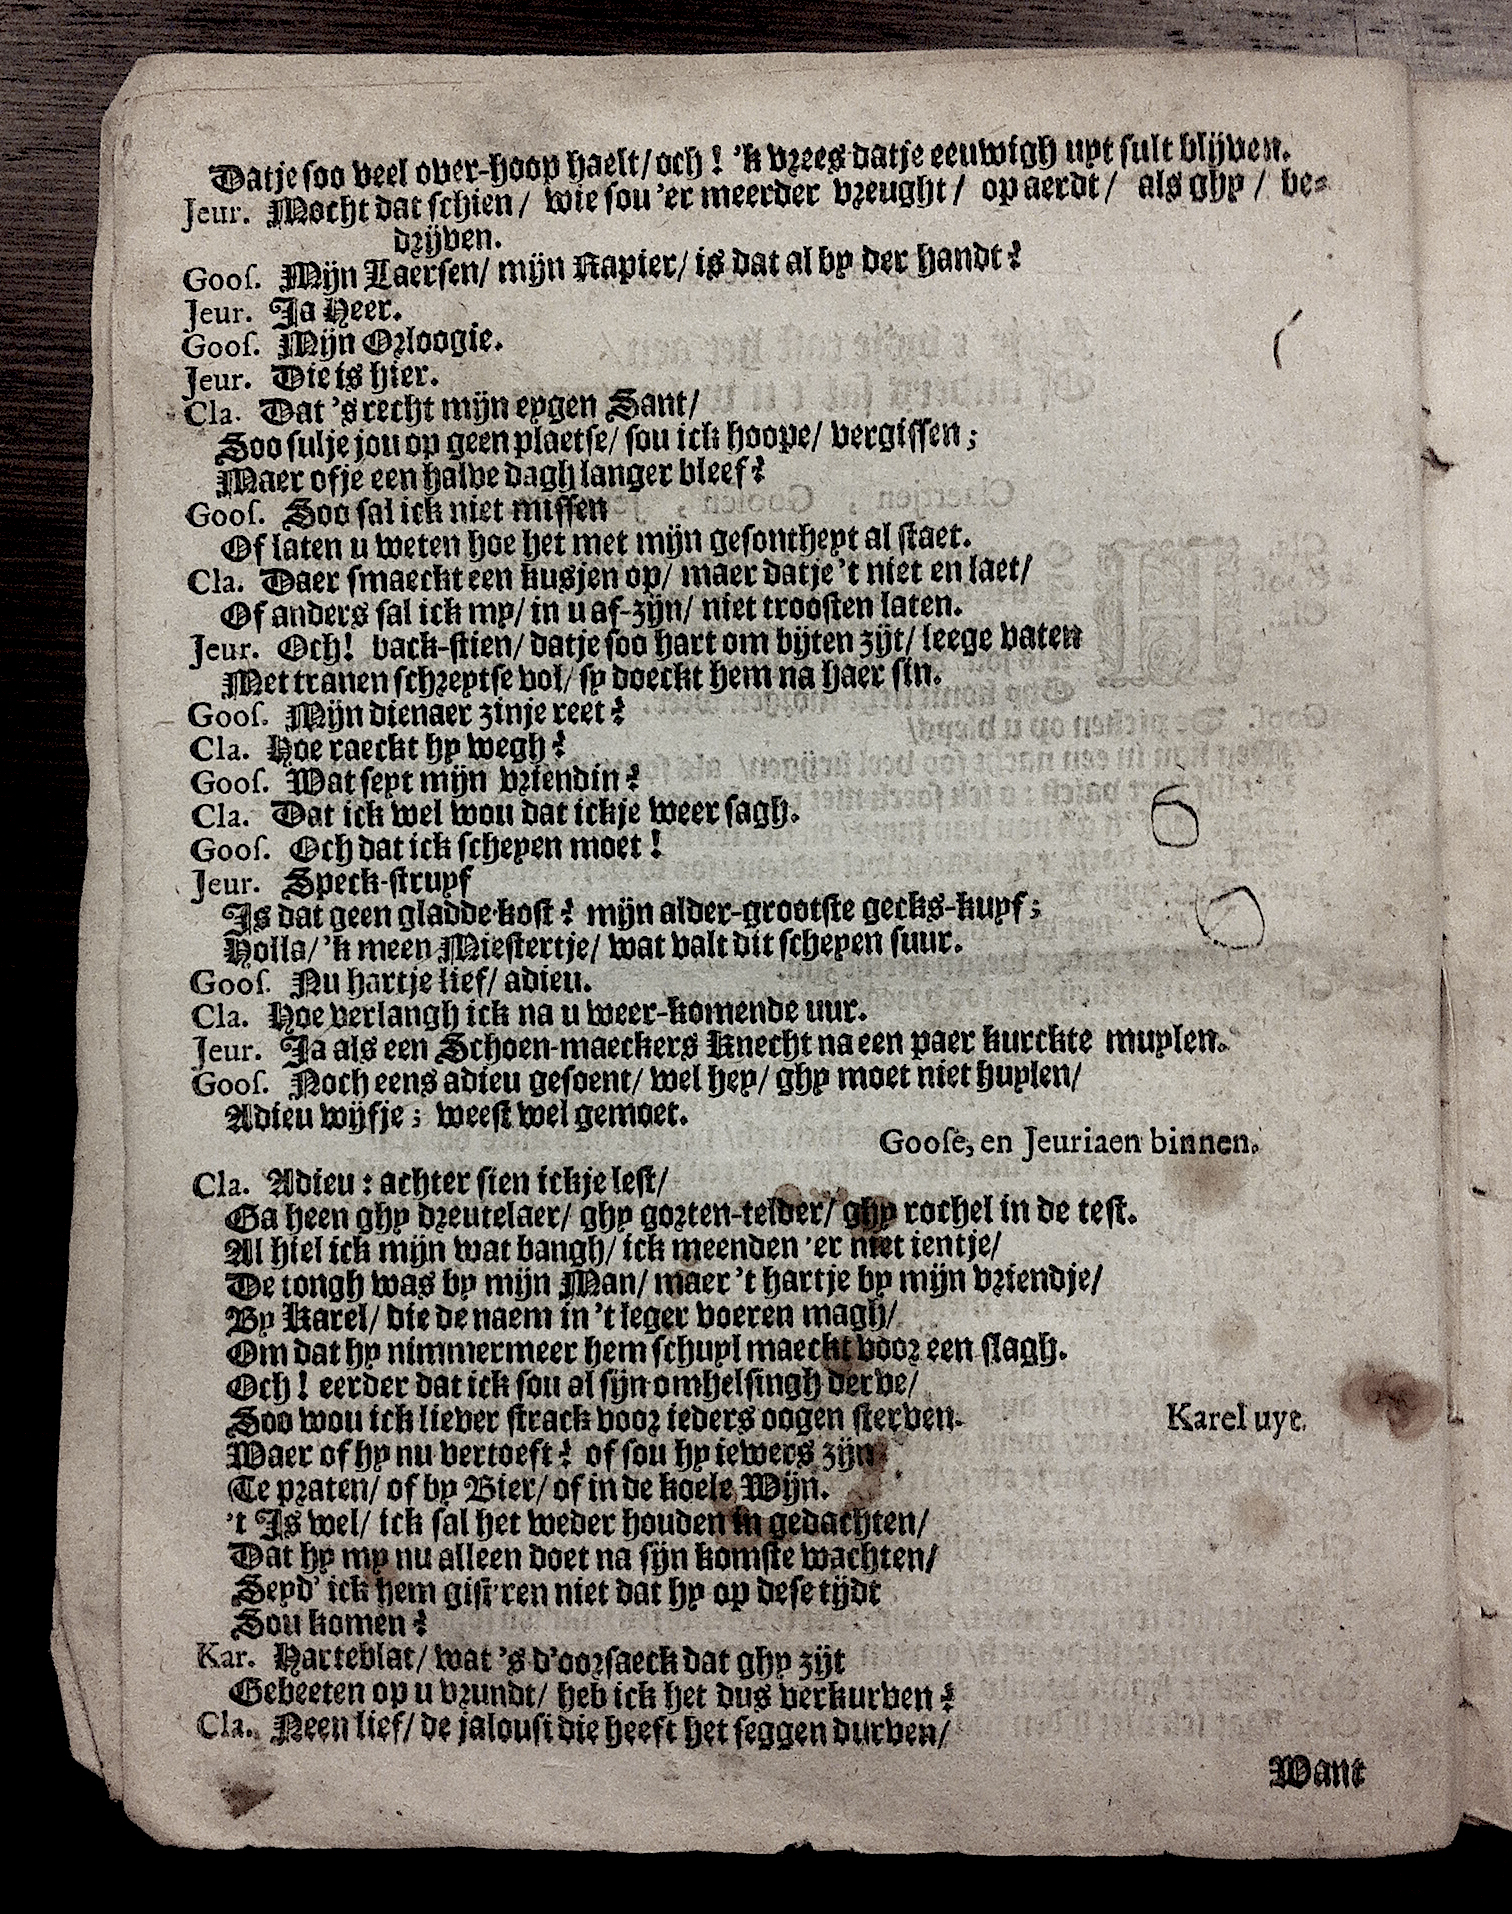 Datje soo veel over-hoop haelt/och! 'k vrees datje eeuwigh uyt sult blijven.
Jeur. Mocht dat schien/ wie sou 'er meerder vreught/ op aerdt/ als ghy/ be-
drijven.
Goos. Mijn Laersen/ mijn Rapier/ is dat al by der handt?
Jeur. Ja Heer.
Goos. Mijn Orloogie.
Jeur. Die is hier.
Cla. Dat 's recht mijn eygen Sant/
Soo sulje jou op geen plaetse/ sou ick hoope/ vergissen;
Maer ofje een halve dagh langer bleef?
Goos. Soo sal ick niet missen
Of laten u weten hoe het met mijn gesontheyt al staet.
Cla. Daer smaeckt een kusjen op/ maer datje 't niet en laet/
Of anders sal ick my/ in u af-zijn/ niet troosten laten.
Jeur. Och! back-stien/ datje soo hart om bijten zijt/ leege vaten
Met tranen schreytse vol/ sy doeckt hem na haer sin.
Goos. Mijn dienaer zinje reet?
Cla. Hoe raeckt hy wegh?
Goos. Wat seyt mijn vriendin?
Cla. Dat ick wel wou dat ickje weer sagh.
Goos. Och dat ick scheyen moet!
Jeur. Speck-struyf
Is dat geen gladde kost? mijn alder-grootste gecks-kuyf;
Holla/ 'k meen Miestertje/ wat valt dit scheyen suur.
Goos. Nu hartje lief/ adieu.
Cla. Hoe verlangh ick na u weer-komende uur.
Jeur. Ja als een Schoen-maeckers Knecht na een paer kurckte muylen.
Goos. Noch eens adieu gesoent/ wel hey/ ghy moet niet huylen/
Adieu wijfje; weest wel gemoet.
Goose, en Jeuriaen binnen.
Cla. Adieu: achter sien ickje lest/
Ga heen ghy dreutelaer/ ghy gorten-telder/ ghy rochel in de test.
Al hiel ick mijn wat bangh/ ick meenden 'er niet ientje/
De tongh was by mijn Man/ maer 't hartje by mijn vriendje/
By Karel/ die de naem in 't leger voeren magh/
Om dat hy nimmermeer hem schuyl maeckt voor een slagh.
Och! eerder dat ick sou al sijn omhelsingh derve/
Soo wou ick liever strack voor ieders oogen sterven.
Karel uyt.
Waer of hy nu vertoeft? of sou hy iewers zijn
Te praten/ of by Bier/ of in de koele Wijn.
't Is wel/ ick sal het weder houden in gedachten/
Dat hy my nu alleen doet na sijn komste wachten/
Seyd' ick hem gist'ren niet dat hy op dese tijdt
Sou komen?
Kar. Harteblat/ wat 's d'oorsaeck dat ghy zijt
Gebeeten op u vrundt/ heb ick het dus verkurven?
Cla. Neen lief/ de jalousi die heeft het seggen durven/
Want